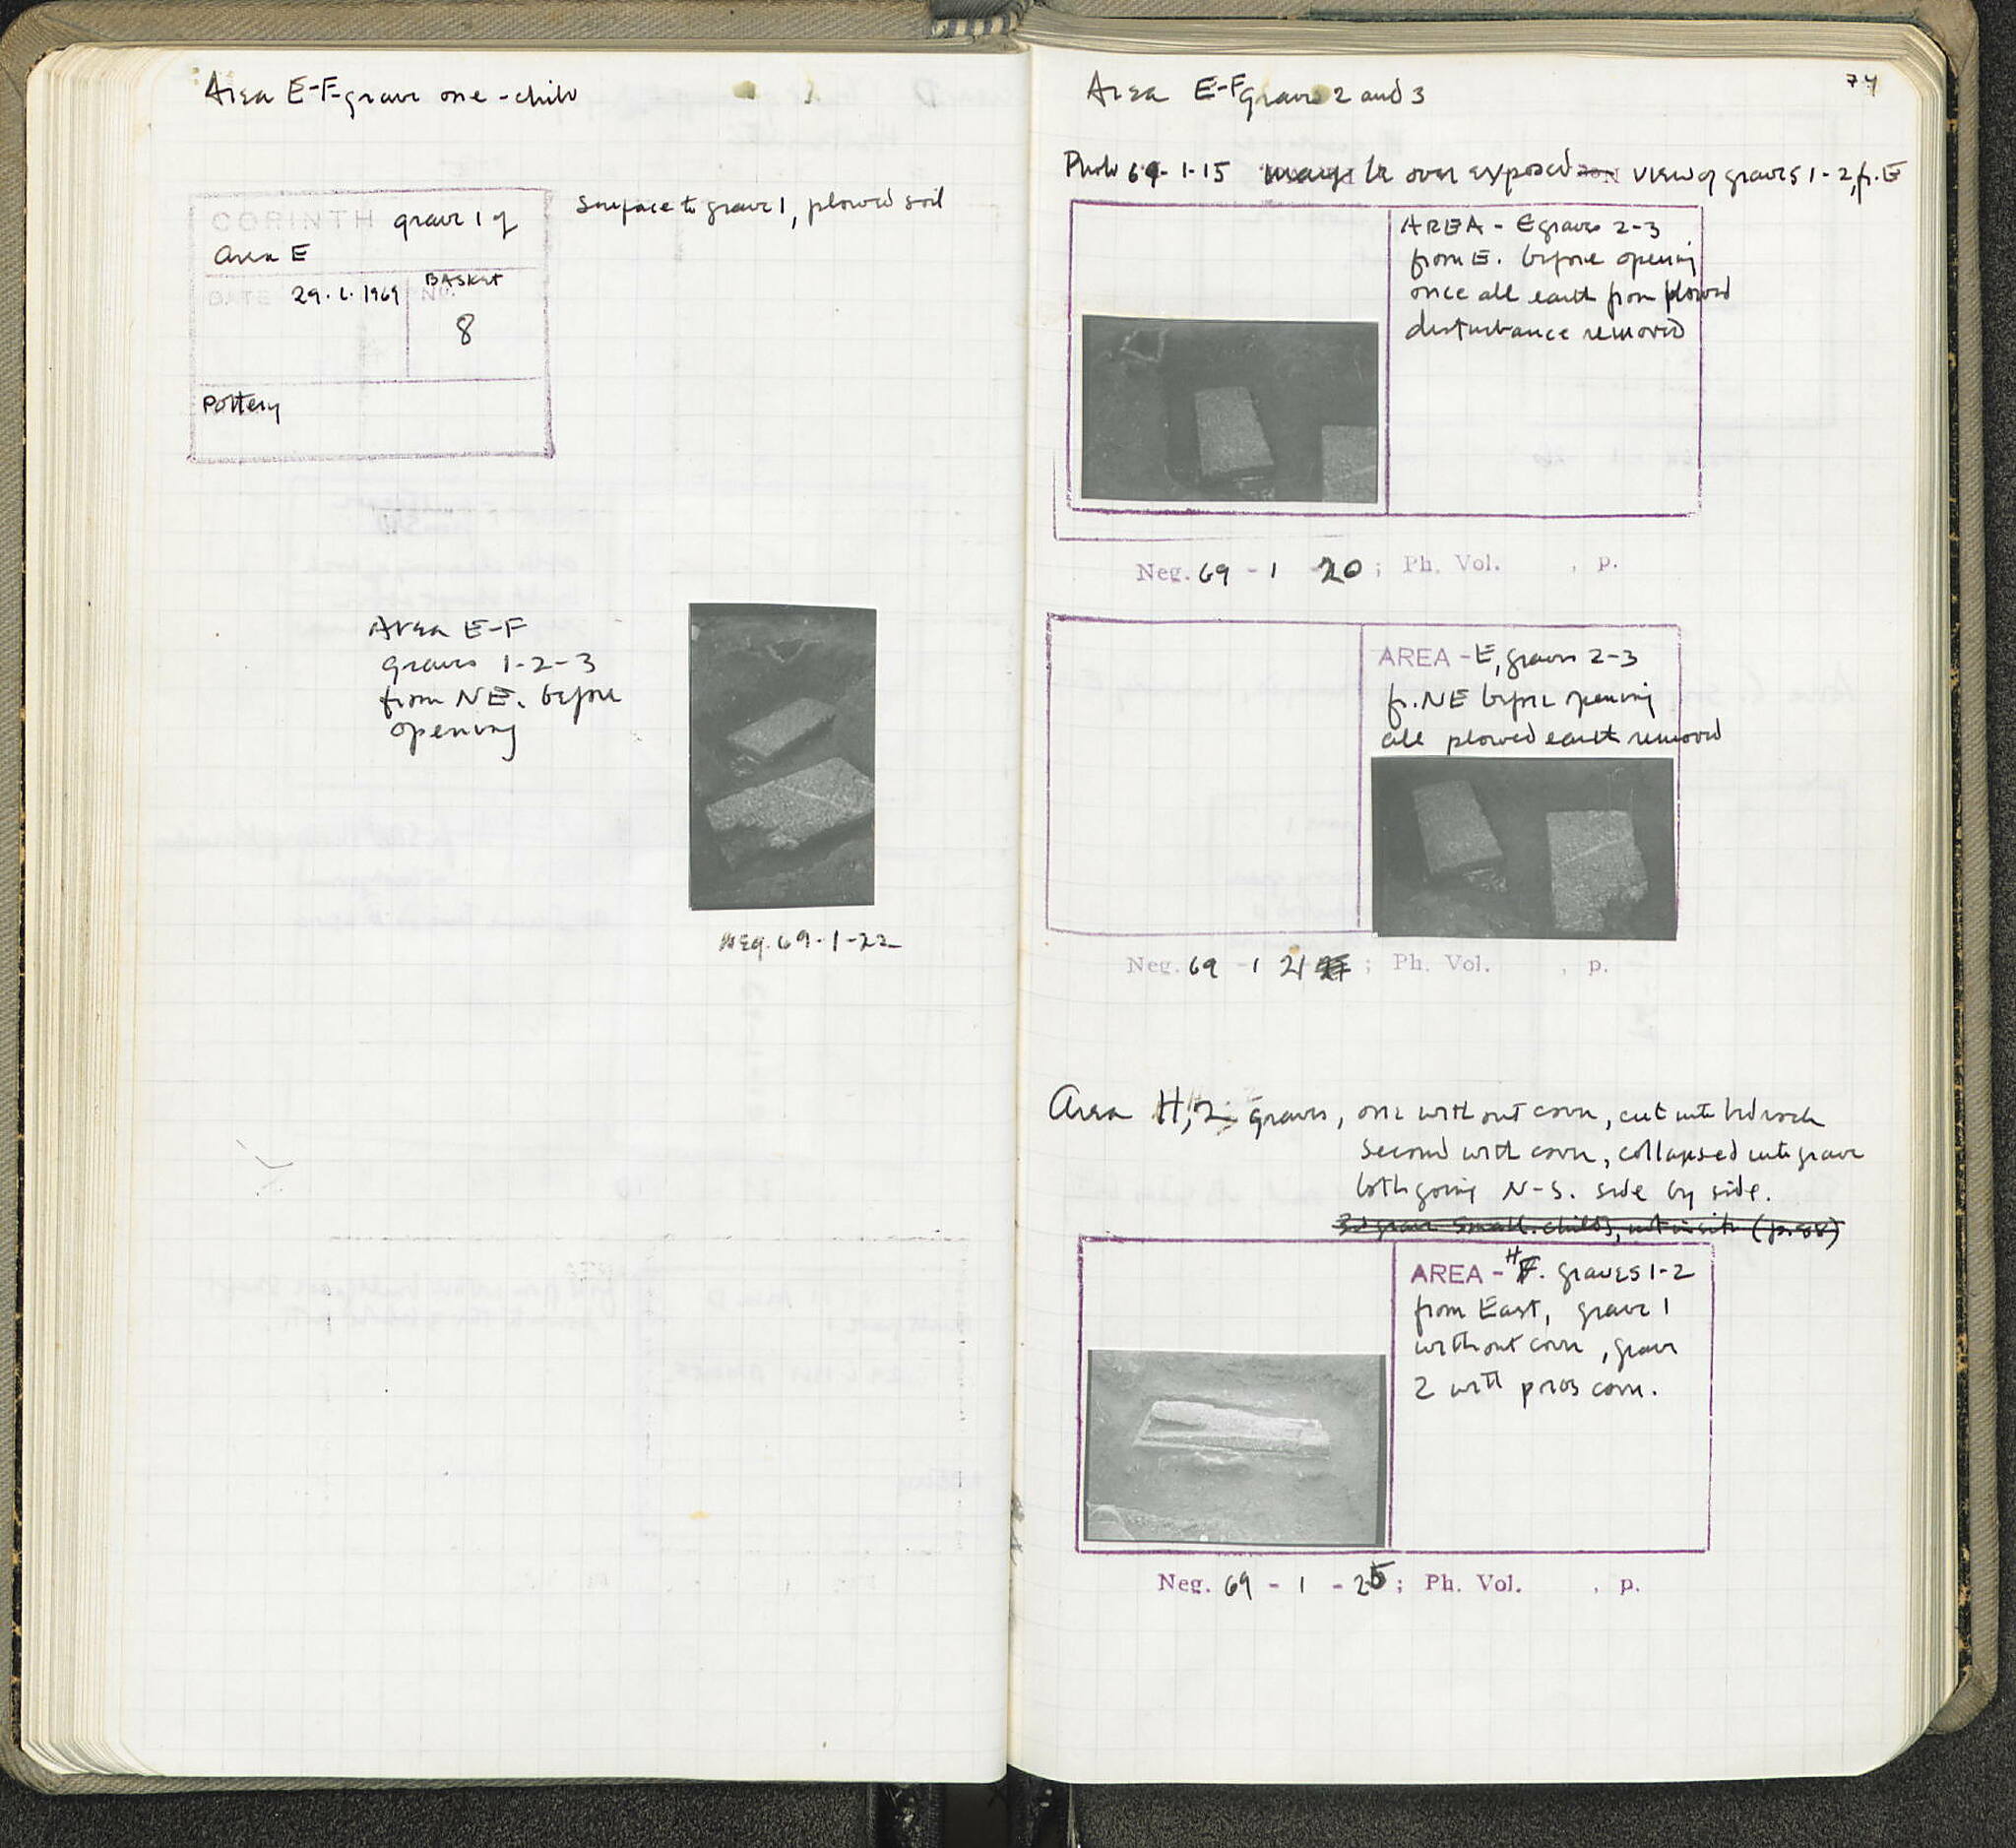 Area E-F-grave one - child
CORINTH grave 1 of
Area E
DATE 29.1.1969 NO. BASKET
8
Pottery
Surface to grave 1, plowed soil
Area E-F
graves 1-2-3
from NE. before
opening
Neg. 69-1-22
74
Area E-F graves 2 and 3
Photo 69-1-15 may be over exposed view of graves 1-2, fr. E
AREA - E graves 2-3
from E. before opening
once all earth from plowed
disturbance removed
Neg. 69 - 1 - 20 ; Ph. Vol. , p.
AREA - E, graves 2-3
fr. NE before opening
all plowed earth removed
Neg. 69 - 1 21 ; Ph. Vol. , p.
Area H, 2 graves, one without cover, cut into bedrock
Second with cover, collapsed into grave
both going N-S. side by side.
3d grave small child's, not in situ
AREA - H. graves 1-2
from East, grave 1
without cover, grave
2 with poros cover.
Neg. 69 - 1 - 25 ; Ph. Vol. , p.